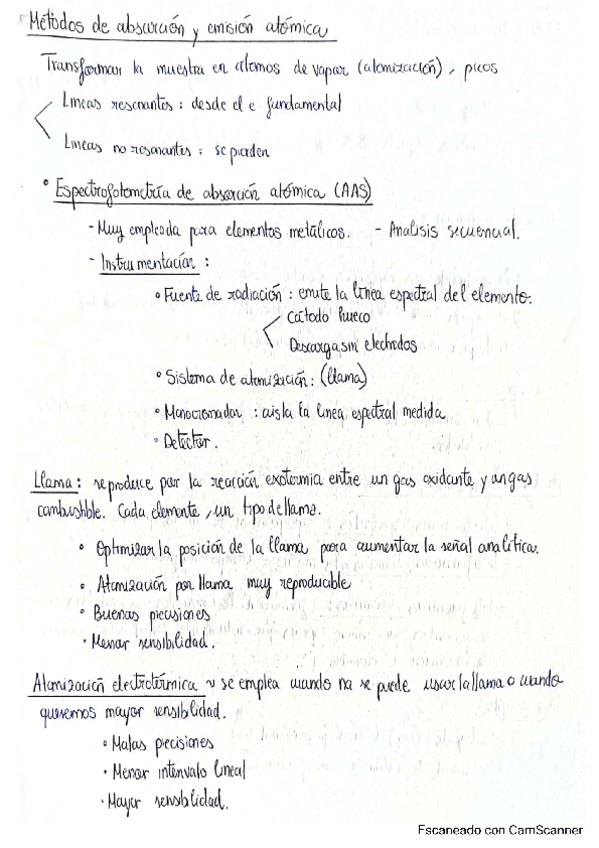 Métodos de absorción y emisión atómica
Transformar la muestra en átomos de vapor (atomización), picos
Líneas resonantes: desde el e fundamental
Líneas no resonantes: se pierden
• Espectrofotometría de absorción atómica (AAS)
- Muy empleada para elementos metálicos. - Analisis secuencial.
- Instrumentación:
• Fuente de radiación: emite la línea espectral del elemento.
Cátodo hueco
Descarga sin electrodos
• Sistema de atomización: (llama)
• Monocromador: aisla la linea espectral medida
• Detector.
Llama: se produce por la reacción exotermia entre un gas oxidante y un gas
combustible. Cada elemento, un tipo de llama.
• Optimizar la posición de la llama para aumentar la señal analítica.
• Atomización por llama muy reproducible
• Buenas precisiones
• Menor sensiblidad.
Atomización electrotérmica ~ se emplea cuando no se puede usar la llama o cuando
queremos mayor sensiblidad.
• Malas precisiones
• Menor intervalo lineal
• Mayor sensiblidad.
Escaneado con CamScanner